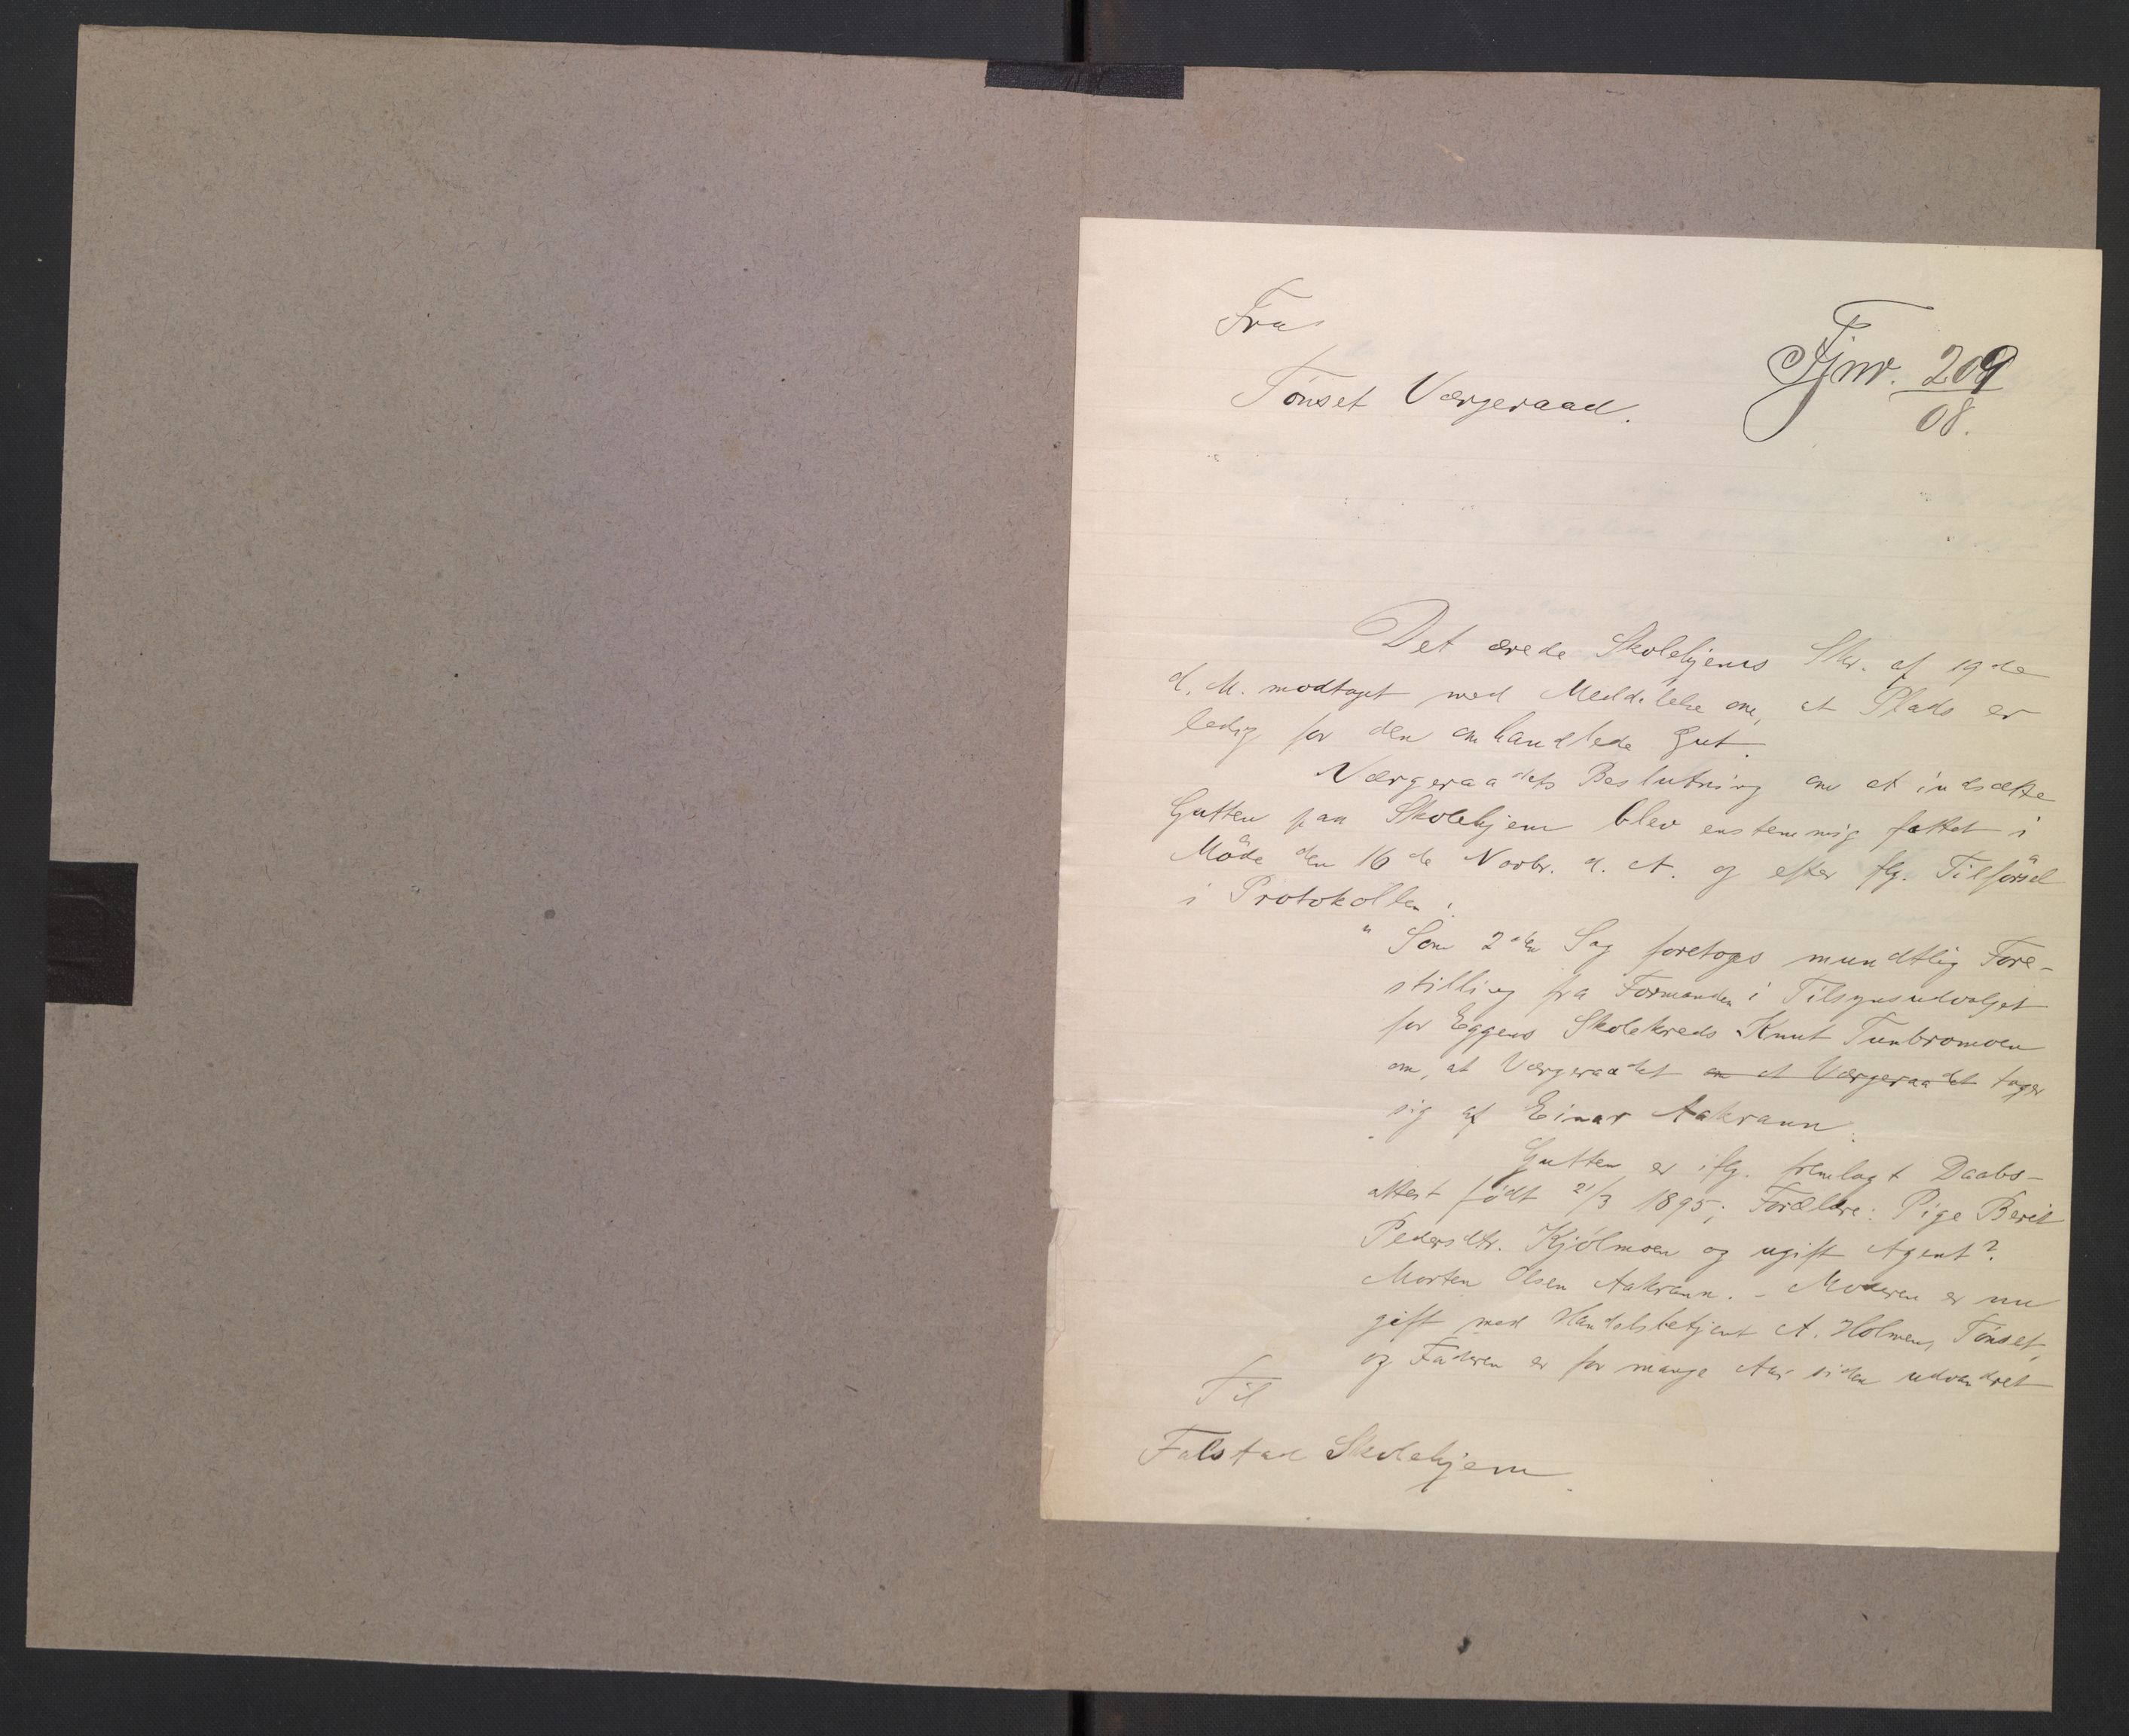 Fra
Tönset Værgeraad.
Fjnr. 209
08.
Det ærede Skolehjems Skr. af 19de
d. M. modtaget med Meddelelse om, at Plads er
ledig for den omhandlede Gut.
Værgeraadets Beslutning om at indsætte
Gutten paa Skolehjem blev enstemmig fattet i
Möde den 16de Novbr. d. A. og efter flg. Tilförsel
i Protokollen:
"Som 2den Sag foretoges mundtlig Fore-
stilling fra Formanden i Tilsynsudvalget
for Eggens Skolekreds Knut Tunbromoen
om, at Værgeraadet om at Værgeraadet tager
sig af Einar Aakrann.
Gutten er iflg. fremlagt Daabs-
attest födt 21/3 1895; Forældre: Pige Berit
Pedersdtr. Kjölmoen og ugift Agent?
Morten Olsen Aakrann. - Moderen er nu
gift med Handelsbetjent A. Holmen, Tönset,
og Faderen er for mange Aar siden udvandret
Til
Falstad Skolehjem.